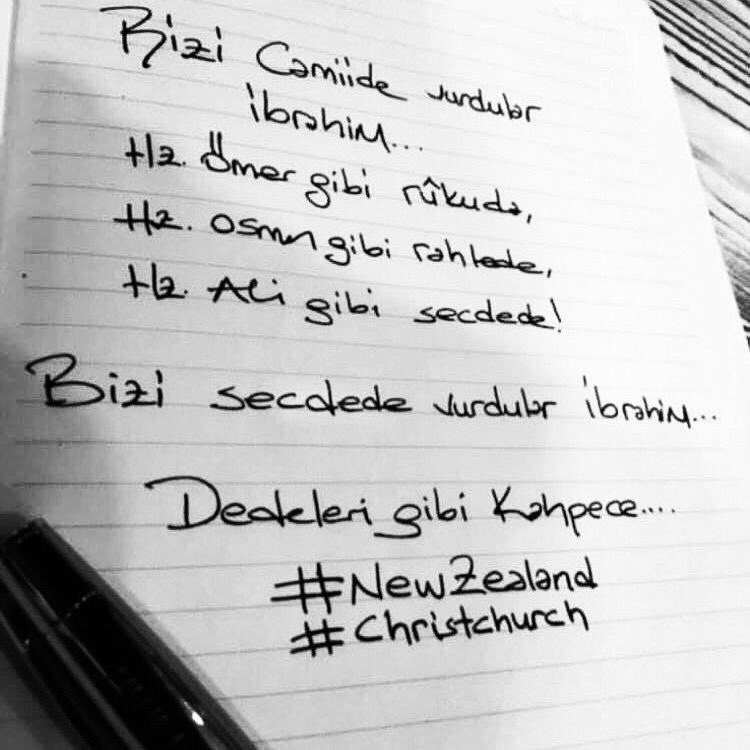 Bizi Camiide vurdular
İbrahim...
Hz. Ömer gibi rûkuda,
Hz. Osman gibi rahlede,
Hz. Ali gibi secdede!
Bizi secdede vurdular İbrahim...
Dedeleri gibi Kahpece....
#NewZealand
#Christchurch